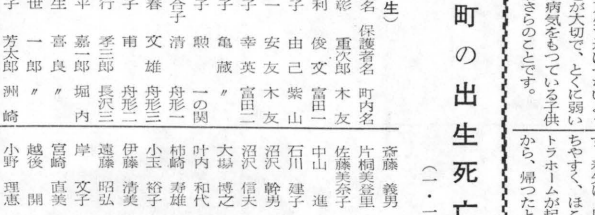 が大切で、とくに弱い
病気をもつている子供
さらのことです。
ちやすく、ほこ
トラホームが起
から、帰つたと
町の出生死亡
(一・一
生)
名 保護者名 町内名
彰 重次郎 木友
利 俊文 富田一
子 由己 紫山
一 安友 木友
子 幸英 富田二
子 亀蔵 〃
子 勲 一の関
合子 清 舟形一
春 文雄 舟形三
子 甫 舟形二
行 孝三郎 長沢三
平 嘉一郎 堀内
生 喜良 〃
世 一郎 〃
子 芳太郎 洲崎
斎藤 義男
片桐美登里
佐藤美奈子
中山 進
石川 建子
沼沢 幹男
沼沢 信夫
大場 博之
叶内 和代
柿崎 寿雄
小玉 裕子
伊藤 清美
遠藤 昭弘
岸 文子
宮崎 直美
越後 開
小野 理恵